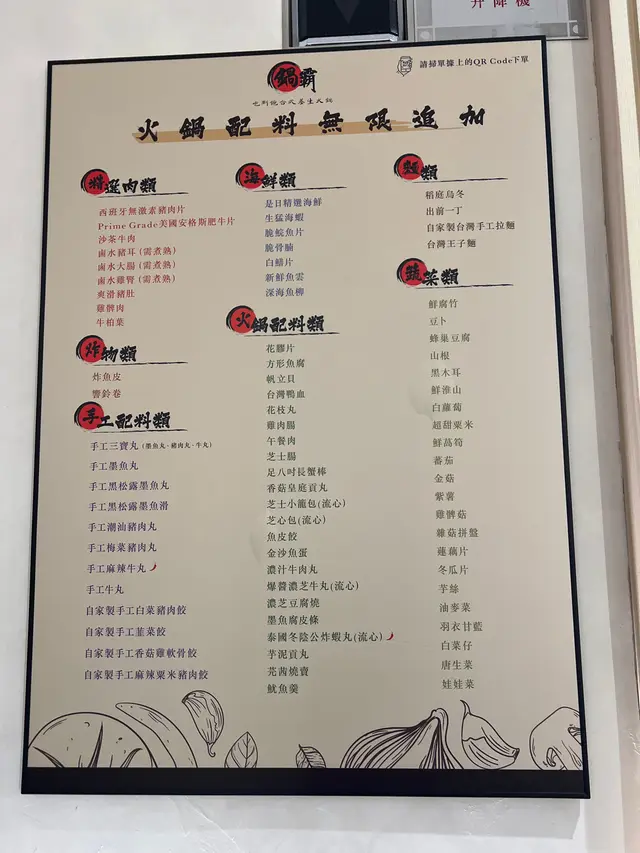 升降機
鍋霸
請掃單據上的QR Code下單
火鍋配料無限追加
精選肉類
西班牙無激素豬肉片
Prime Grade美國安格斯肥牛片
沙茶牛肉
鹵水豬耳 (需煮熟)
鹵水大腸 (需煮熟)
鹵水雞腎 (需煮熟)
爽滑豬肚
雞髀肉
牛柏葉
炸物類
炸魚皮
響鈴卷
手工配料類
手工三寶丸 (墨魚丸、豬肉丸、牛丸)
手工墨魚丸
手工黑松露墨魚丸
手工黑松露墨魚滑
手工潮汕豬肉丸
手工梅菜豬肉丸
手工麻辣牛丸
手工牛丸
自家製手工白菜豬肉餃
自家製手工韮菜餃
自家製手工香菇雞軟骨餃
自家製手工麻辣粟米豬肉餃
海鮮類
是日精選海鮮
生猛海蝦
脆鯇魚片
脆骨腩
白鱔片
新鮮魚雲
深海魚柳
火鍋配料類
花膠片
方形魚腐
帆立貝
台灣鴨血
花枝丸
雞肉腸
午餐肉
芝士腸
足八吋長蟹棒
香菇皇庭貢丸
芝士小籠包(流心)
芝心包(流心)
魚皮餃
金沙魚蛋
濃汁牛肉丸
爆醬濃芝牛丸(流心)
濃芝豆腐燒
墨魚腐皮條
泰國冬陰公炸蝦丸(流心)
芋泥貢丸
芫茜燒賣
魷魚羹
麵類
稻庭烏冬
出前一丁
自家製台灣手工拉麵
台灣王子麵
蔬菜類
鮮腐竹
豆卜
蜂巢豆腐
山根
黑木耳
鮮淮山
白蘿蔔
超甜粟米
鮮萵筍
蕃茄
金菇
紫薯
雞髀菇
雜菇拼盤
蓮藕片
冬瓜片
芋絲
油麥菜
羽衣甘藍
白菜仔
唐生菜
娃娃菜